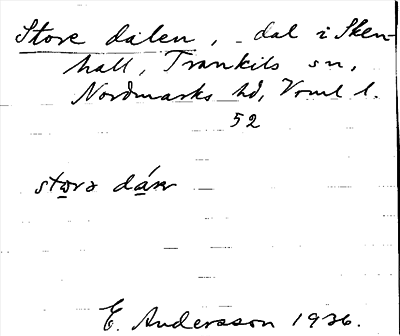 Store dalen, - dal i Sken-
hall, Trankils sn,
Nordmarks hd, Vrml l.
52
storə dáɳ
E. Andersson 1936.